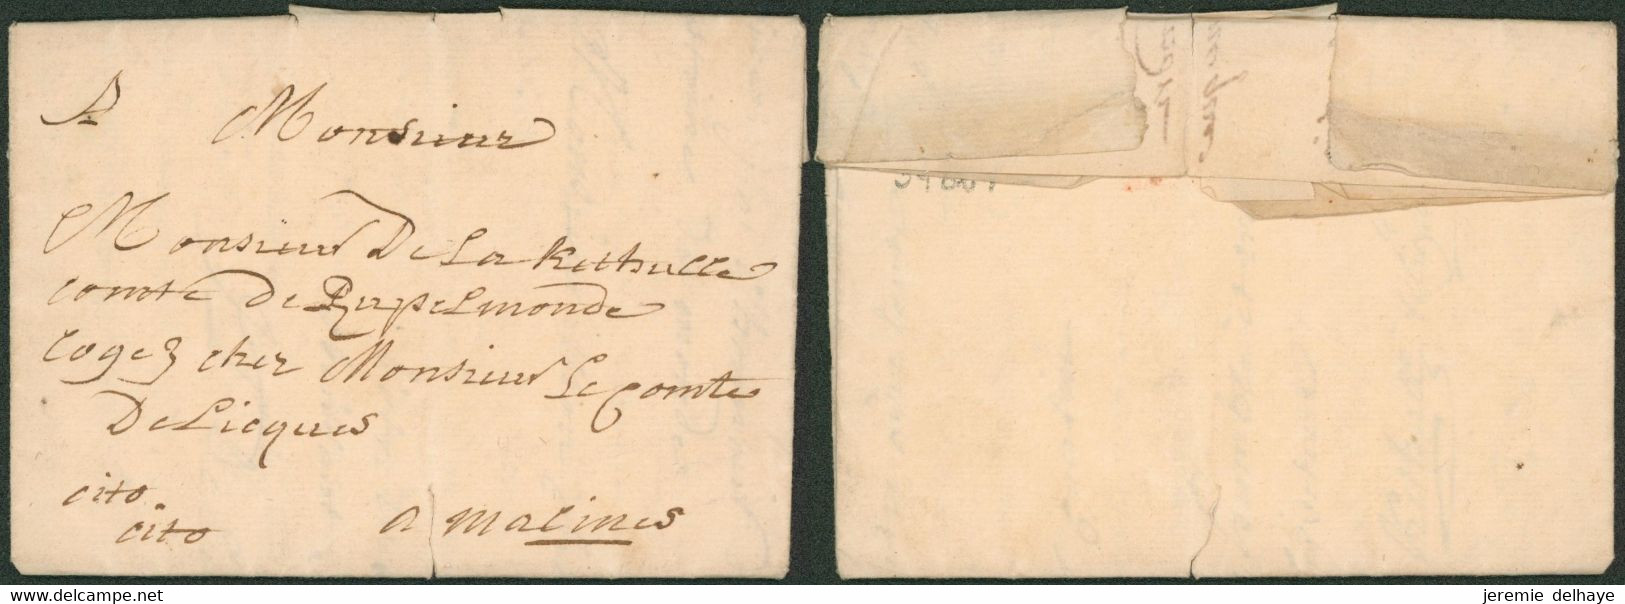 A Monsieur
Monsieur De La Kethulle
comte de Rupelmonde
logez chez Monsieur Le Comte
De Licques
cito
cito
a malines
delcampe.net
jeremie delhaye